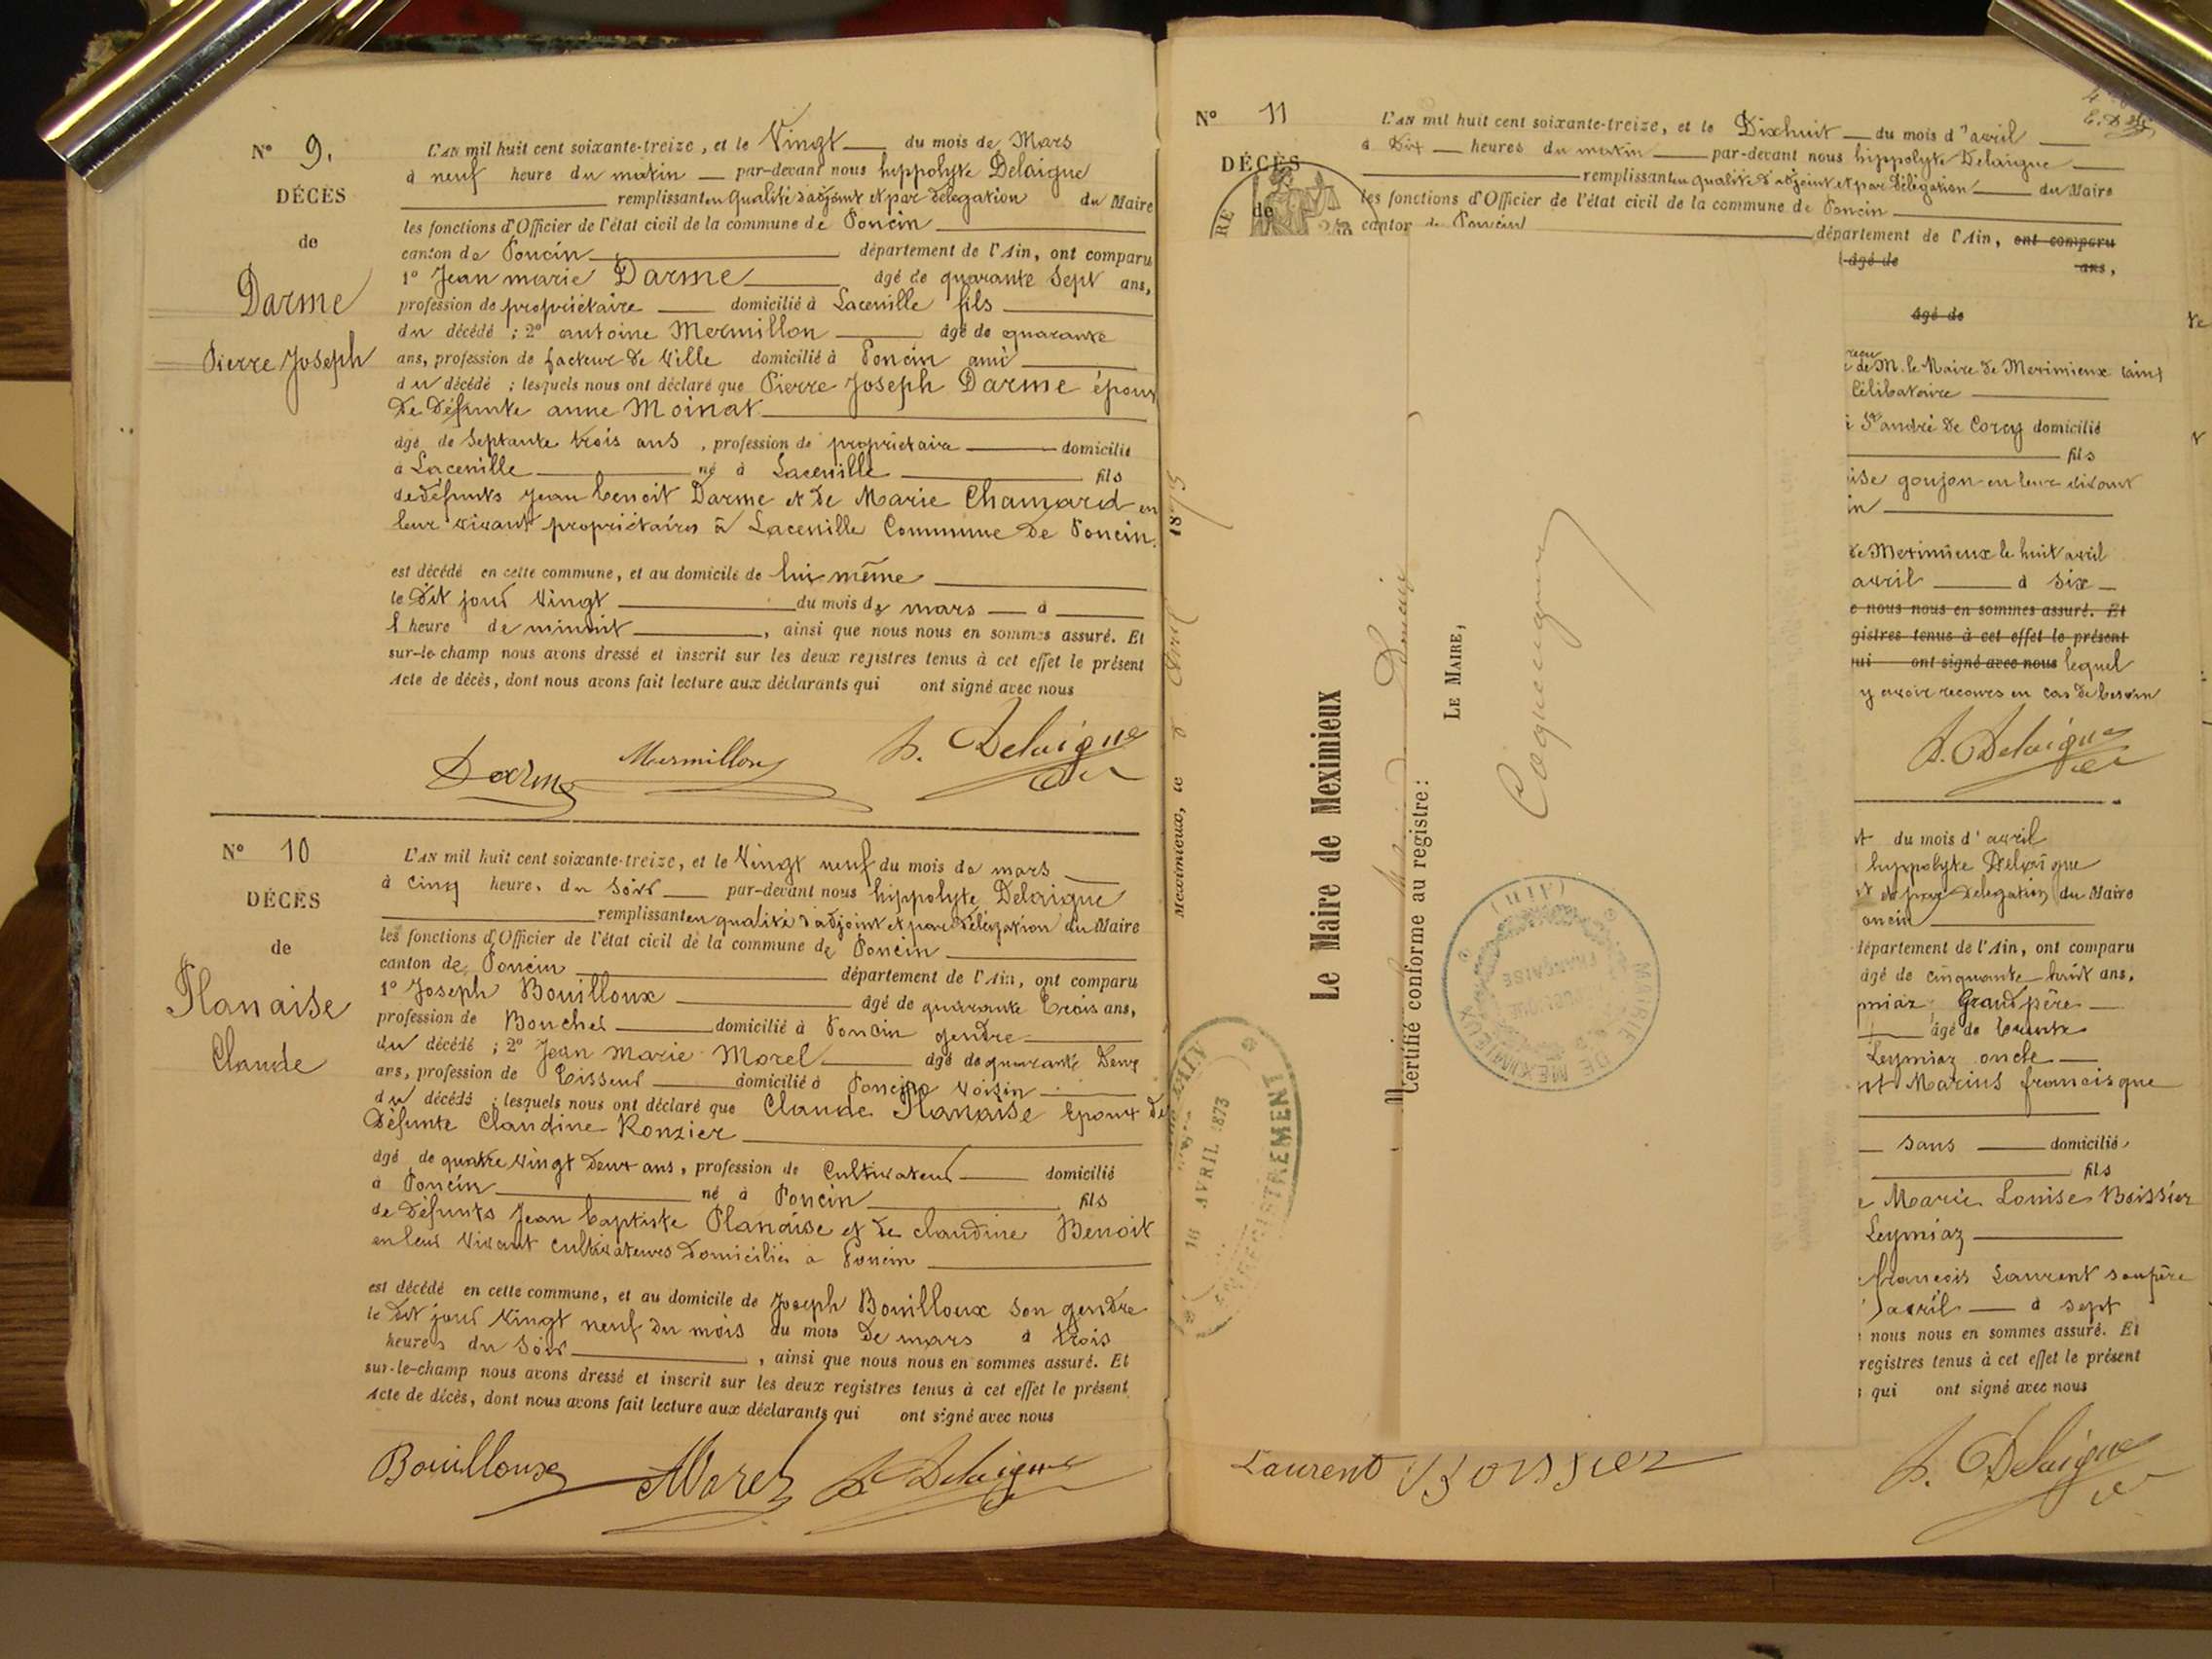 N° 9.
DÉCÈS
de
Darme
Pierre Joseph
L'AN mil huit cent soixante-treize, et le Vingt du mois de Mars
à neuf heure du matin par-devant nous hippolyte Delaigue
remplissant en qualité d'adjoint et par délégation du Maire
les fonctions d'Officier de l'état civil de la commune de Poncin
canton de Poncin département de l'Ain, ont comparu
1° Jean marie Darme âgé de quarante Sept ans,
profession de propriétaire domicilié à Lacenille fils
du décédé ; 2° antoine Mermillon âgé de quarante
ans, profession de facteur de Ville domicilié à Poncin ami
du décédé ; lesquels nous ont déclaré que Pierre Joseph Darme époux
de défunte anne Moinat
âgé de Septante trois ans, profession de propriétaire domicilié
à Lacenille né à Lacenille fils
de défunts Jean benoit Darme et de Marie Chamard en
leur vivant propriétaires à Lacenille Commune de Poncin.
est décédé en cette commune, et au domicile de lui même
le dit jour Vingt du mois de mars à
1 heure de minuit, ainsi que nous nous en sommes assuré. Et
sur-le-champ nous avons dressé et inscrit sur les deux registres tenus à cet effet le présent
Acte de décès, dont nous avons fait lecture aux déclarants qui ont signé avec nous
Darme Mermillon h. Delaigue
N° 10
DÉCÈS
de
Planaise
Claude
L'AN mil huit cent soixante-treize, et le Vingt neuf du mois de mars
à cinq heure. du Soir par-devant nous hippolyte Delaigue
remplissant en qualité d'adjoint et par délégation du Maire
les fonctions d'Officier de l'état civil de la commune de Poncin
canton de Poncin département de l'Ain, ont comparu
1° Joseph Bouilloux âgé de quarante trois ans,
profession de Boucher domicilié à Poncin gendre
du décédé ; 2° Jean Marie Morel âgé de quarante Deux
ans, profession de tisseur domicilié à Poncin Voisin
du décédé ; lesquels nous ont déclaré que Claude Planaise Epoux de
défunte Claudine Ronzier
âgé de quatre Vingt Deux ans, profession de Cultivateur domicilié
à Poncin né à Poncin fils
de défunts Jean baptiste Planaise et de claudine Benoit
en leur Vivant cultivateurs domiciliés à Poncin
est décédé en cette commune, et au domicile de Joseph Bouilloux Son gendre
le dit jour Vingt neuf du mois du mois de mars à trois
heures du Soir, ainsi que nous nous en sommes assuré. Et
sur-le-champ nous avons dressé et inscrit sur les deux registres tenus à cet effet le présent
Acte de décès, dont nous avons fait lecture aux déclarants qui ont signé avec nous
Bouilloux Morel h. Delaigue
N° 11
DÉCÈS
de
L'AN mil huit cent soixante-treize, et le Dixhuit du mois d'avril
à Dix heures du matin par-devant nous hippolyte Delaigue
remplissant en qualité d'adjoint et par délégation du Maire
les fonctions d'Officier de l'état civil de la commune de Poncin
canton de Poncin département de l'Ain, ont comparu
âgé de ans,
âgé de
de M. le Maire de Meximieux (ain)
Célibataire
St andré de Corcy domicilié
fils
goujon en leur vivant
de Meximieux le huit avril
avril à six
nous nous en sommes assuré. Et
gistres tenus à cet effet le présent
ont signé avec nous lequel
y avoir recours en cas de besoin
h. Delaigue
Meximieux, le Avril 1873
Le Maire de Meximieux
Certifié conforme au registre :
LE MAIRE,
MAIRIE DE MEXIMIEUX (Ain)
FRANÇAISE
AVRIL 1873
ENREGISTREMENT
du mois d'avril
hippolyte Delaigue
et par délégation du Maire
oncin
département de l'Ain, ont comparu
âgé de cinquante huit ans,
Grand père
âgé de trente
Leymiaz oncle
Marius francisque
sans domicilié
fils
Marie Louise Boissier
Leymiaz
francois Laurent son père
avril à sept
nous nous en sommes assuré. Et
registres tenus à cet effet le présent
qui ont signé avec nous
Laurent Boissier h. Delaigue